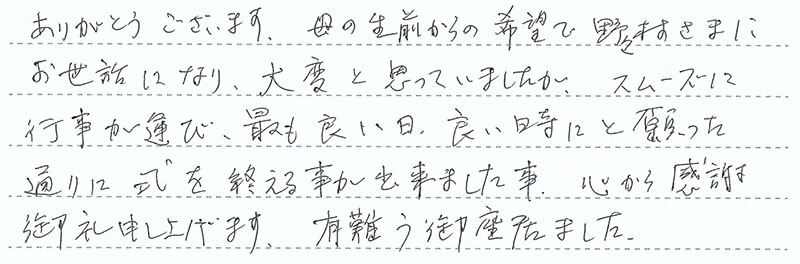 ありがとうございます。母の生前からの希望で野々村さまに
お世話になり、大変と思っていましたが、スムーズに
行事が運び、最も良い日、良い時にと願った
通りに式を終える事が出来ました事、心から感謝
御礼申し上げます。有難う御座居ました。